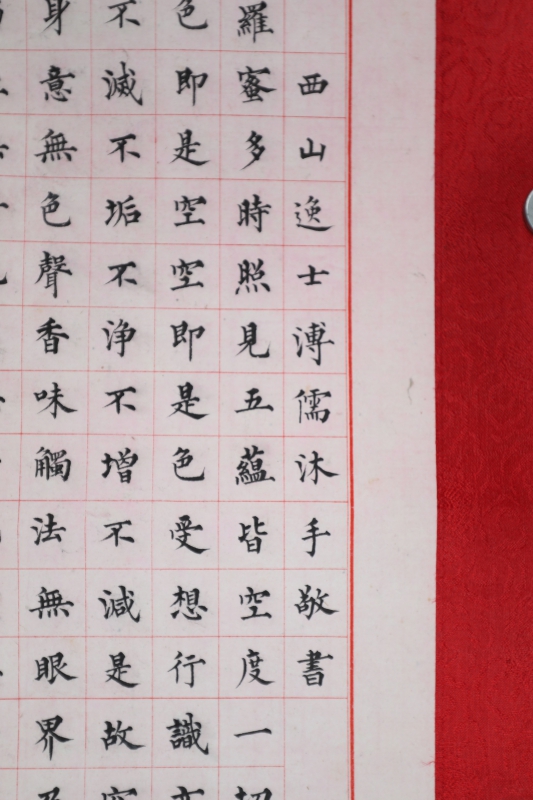 西山逸士溥儒沐手敬書
羅蜜多時照見五蘊皆空度一切
色即是空空即是色受想行識亦
不滅不垢不浄不增不減是故空
身意無色聲香味觸法無眼界乃